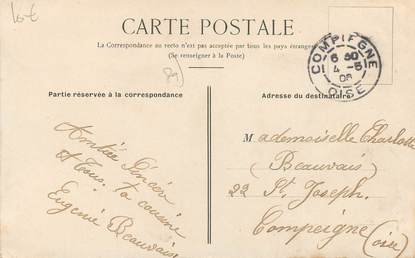 10€
CARTE POSTALE
La Correspondance au recto n'est pas acceptée par tous les pays étrangers
(Se renseigner à la Poste)
COMPIEGNE
6 30
4-5
08
OISE
Partie réservée à la correspondance
Adresse du destinataire
Amitié Sincère
et Tous. Ta cousine
Eugénie Beauvais
Mademoiselle Charlotte
(Beauvais)
22 St Joseph.
Compeigne
(oise)